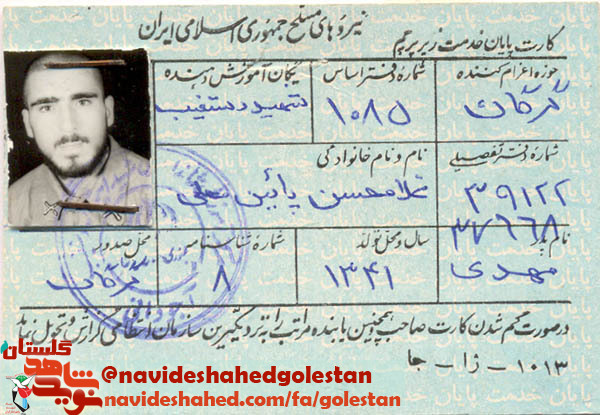 نیروهای مسلح جمهوری اسلامی ایران
کارت پایان خدمت زیر پرچم
حوزه اعزام کننده
گرگان
شماره دفتر اساس
۱۰۸۵
یگان آموزش دهنده
شهید دستغیب
شماره دفتر تفصیلی
۳۹۱۲۲
۳۷۶۶۸
نام و نام خانوادگی
غلامحسن پائین محلی
نام پدر
مهدی
سال و محل تولد
۱۳۴۱
شماره شناسنامه
۸
محل صدور
گرگان
در صورت گم شدن کارت صاحب و همچنین یابنده مراتب را به نزدیکترین سازمان انتظامی گزارش و تحویل نماید
۱۰۱۳ - ژا - جا
نوید شاهد
گلستان
@navideshahedgolestan
navideshahed.com/fa/golestan